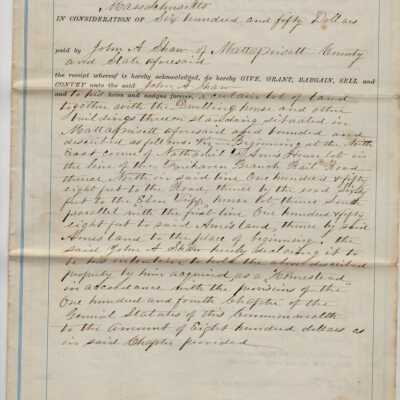 Massachusetts
IN CONSIDERATION OF Six hundred and fifty Dollars
paid by John A Shaw of Mattapoisett County
and State aforesaid
the receipt whereof is hereby acknowledged, do hereby GIVE, GRANT, BARGAIN, SELL and
CONVEY unto the said John A Shaw
and to his heirs and assigns forever, a certain lot of land
together with the Dwelling house and other
buildings thereon standing situated in
Mattapoisett aforesaid and bounded and
described as follows: Viz— Beginning at the North
east corner of Nathaniel Ames house lot in
the line of the Fairhaven Branch Rail Road
thence North in said line One hundred & fifty
eight feet to the Road, thence by the road Sixty
feet to the Eben house lot, thence South
parallel with the first line One hundred & fifty
eight feet to said Ames land, thence by said
Ames land to the place of beginning. the
said John A Shaw hereby declaring it to
be his intention to hold the above described
property by him acquired as a Homestead
in accordance with the provisions of the
One hundred and fourth Chapter of the
General Statutes of this Commonwealth
to the amount of Eight hundred dollars as
in said Chapter provided